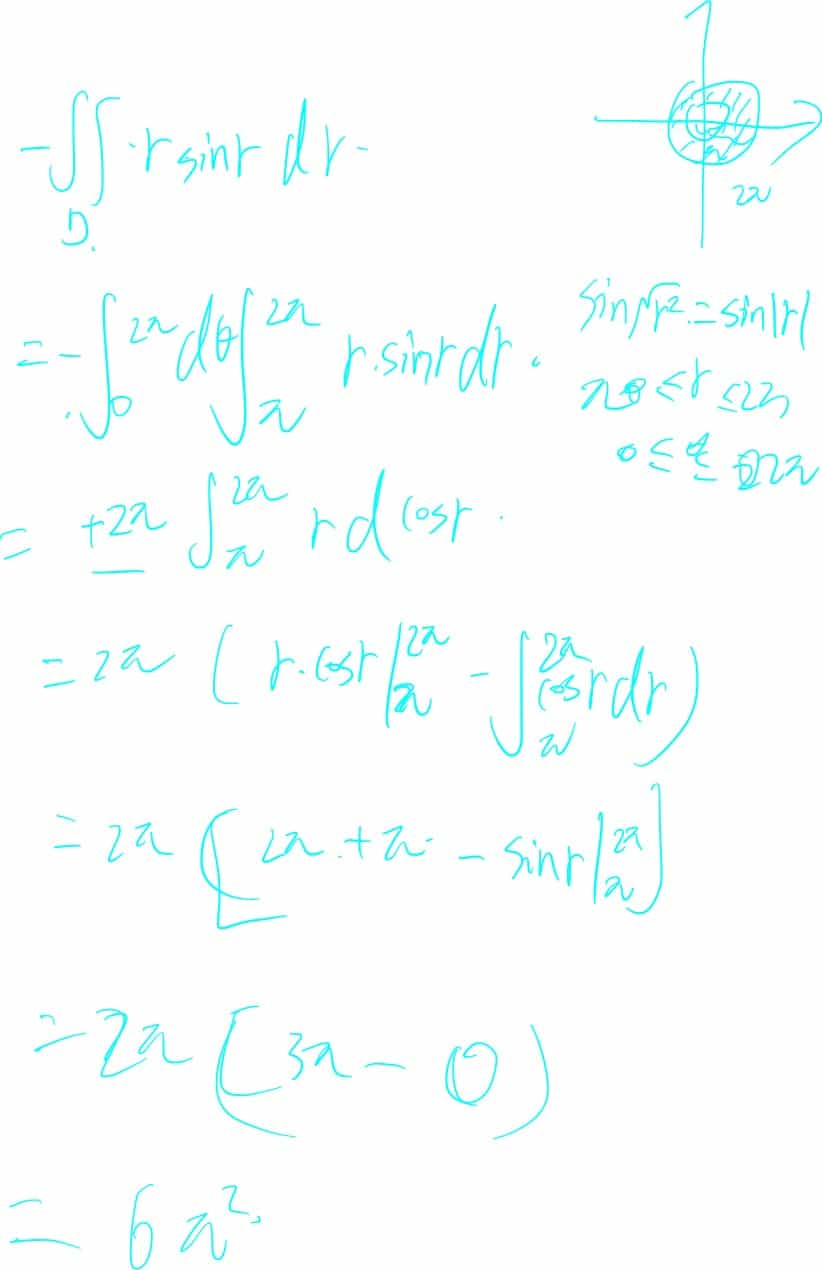 -∬_D r sinr dr
2π
sin√r² = sin|r|
= -∫_0^{2π} dθ ∫_π^{2π} r·sinr dr.
π ≤ r ≤ 2π
0 ≤ θ ≤ 2π
= +2π ∫_π^{2π} r d cosr.
= 2π ( r·cosr |_π^{2π} - ∫_π^{2π} cosr dr )
= 2π [ 2π + π - sinr |_π^{2π} ]
= 2π [ 3π - 0 )
= 6π².